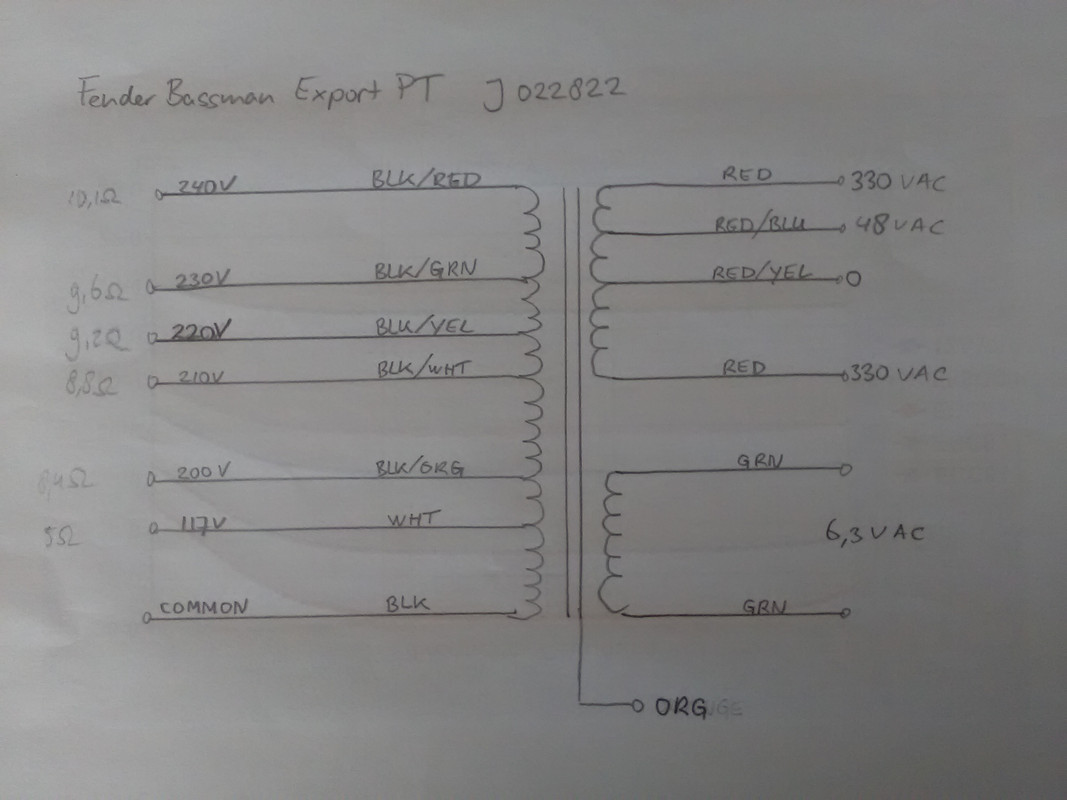 Fender Bassman Export PT J022822
10,1Ω 240V BLK/RED RED 330 VAC
RED/BLU 48VAC
9,6Ω 230V BLK/GRN RED/YEL 0
9,2Ω 220V BLK/YEL
8,8Ω 210V BLK/WHT RED 330 VAC
8,4Ω 200V BLK/ORG GRN
5Ω 117V WHT 6,3VAC
COMMON BLK GRN
ORGNGE